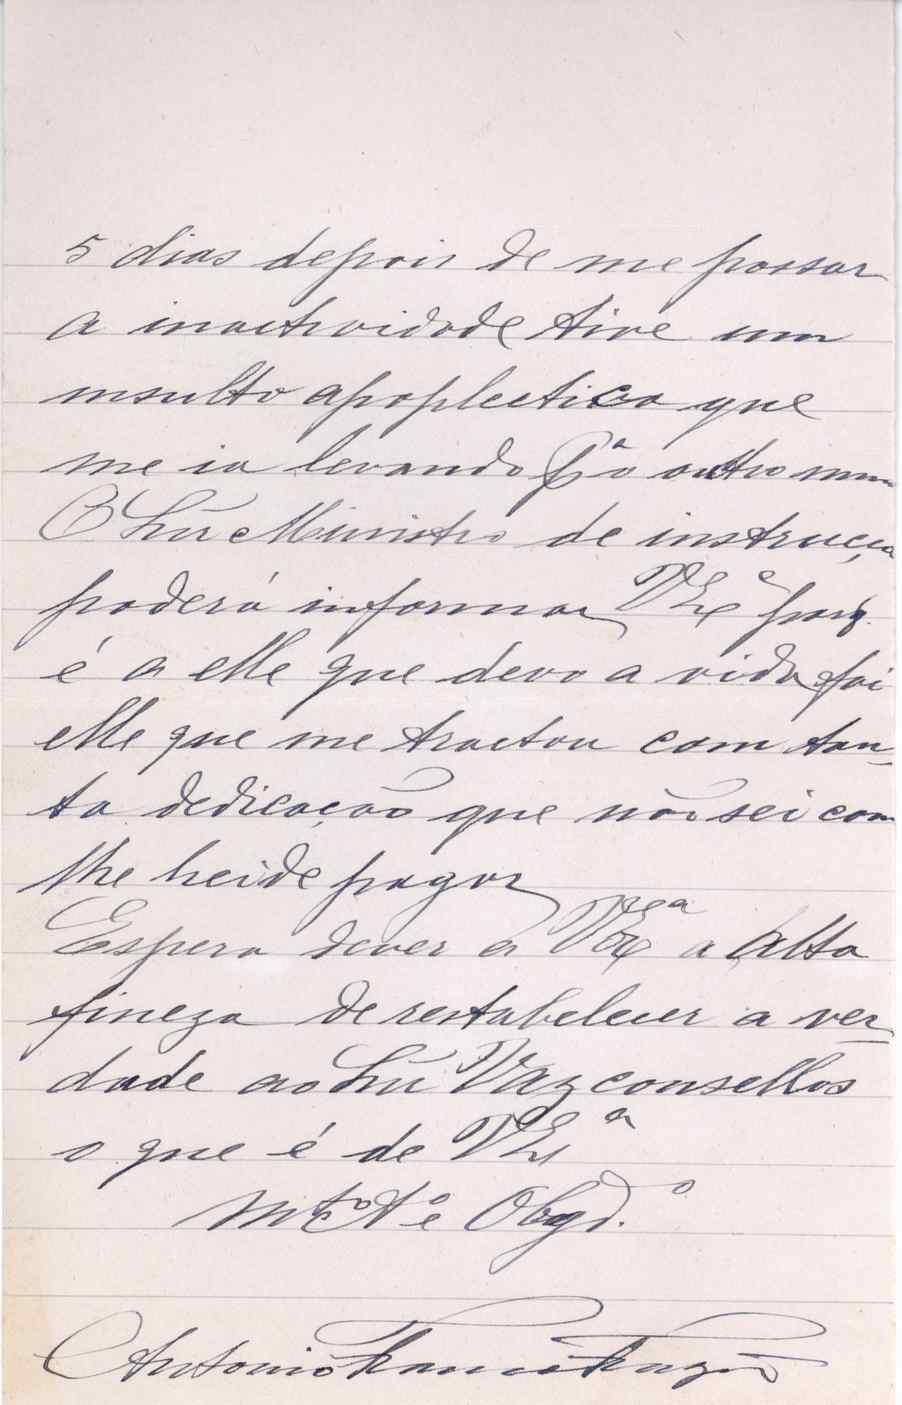 5 dias depois de me passar
a inactividade tive um
insulto apopletico que
me ia levando pª o outro mun
O Snr Ministro de instrucça
poderá informar V Exª porq.
é a elle que devo a vida foi
elle que me tractou com tan-
ta dedicação que não sei com
lhe heide pagar
Espero dever a V Exª a alta
fineza de restabelecer a ver
dade ao Snr Vazconsellos
o que é de V Exª
Mtº Atº e Obgdº
Antonio